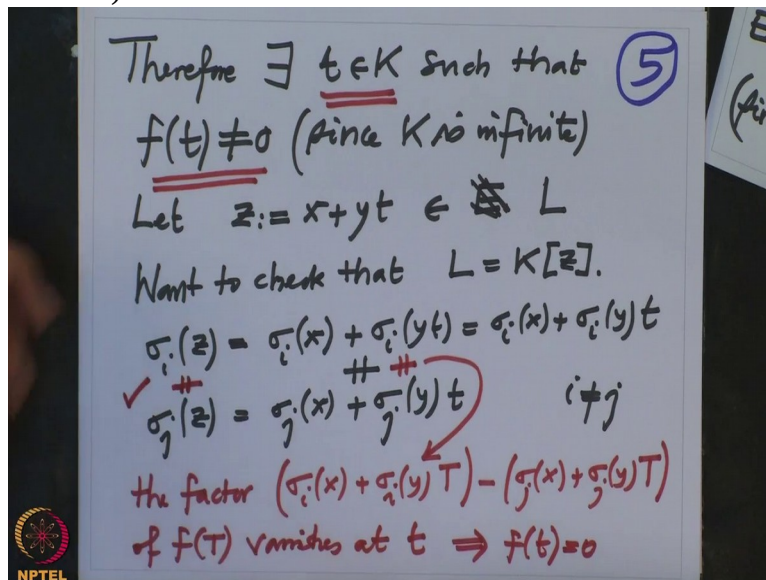 Therefore ∃ t ∈ K such that
5
f(t) ≠ 0 (since K is infinite)
Let z := x + yt ∈ L
Want to check that L = K[z].
σ_i(z) = σ_i(x) + σ_i(yt) = σ_i(x) + σ_i(y)t
✓ ≠ ≠ ≠
σ_j(z) = σ_j(x) + σ_j(y)t i ≠ j
the factor (σ_i(x) + σ_i(y)T) - (σ_j(x) + σ_j(y)T)
of f(T) vanishes at t ⇒ f(t) = 0
NPTEL